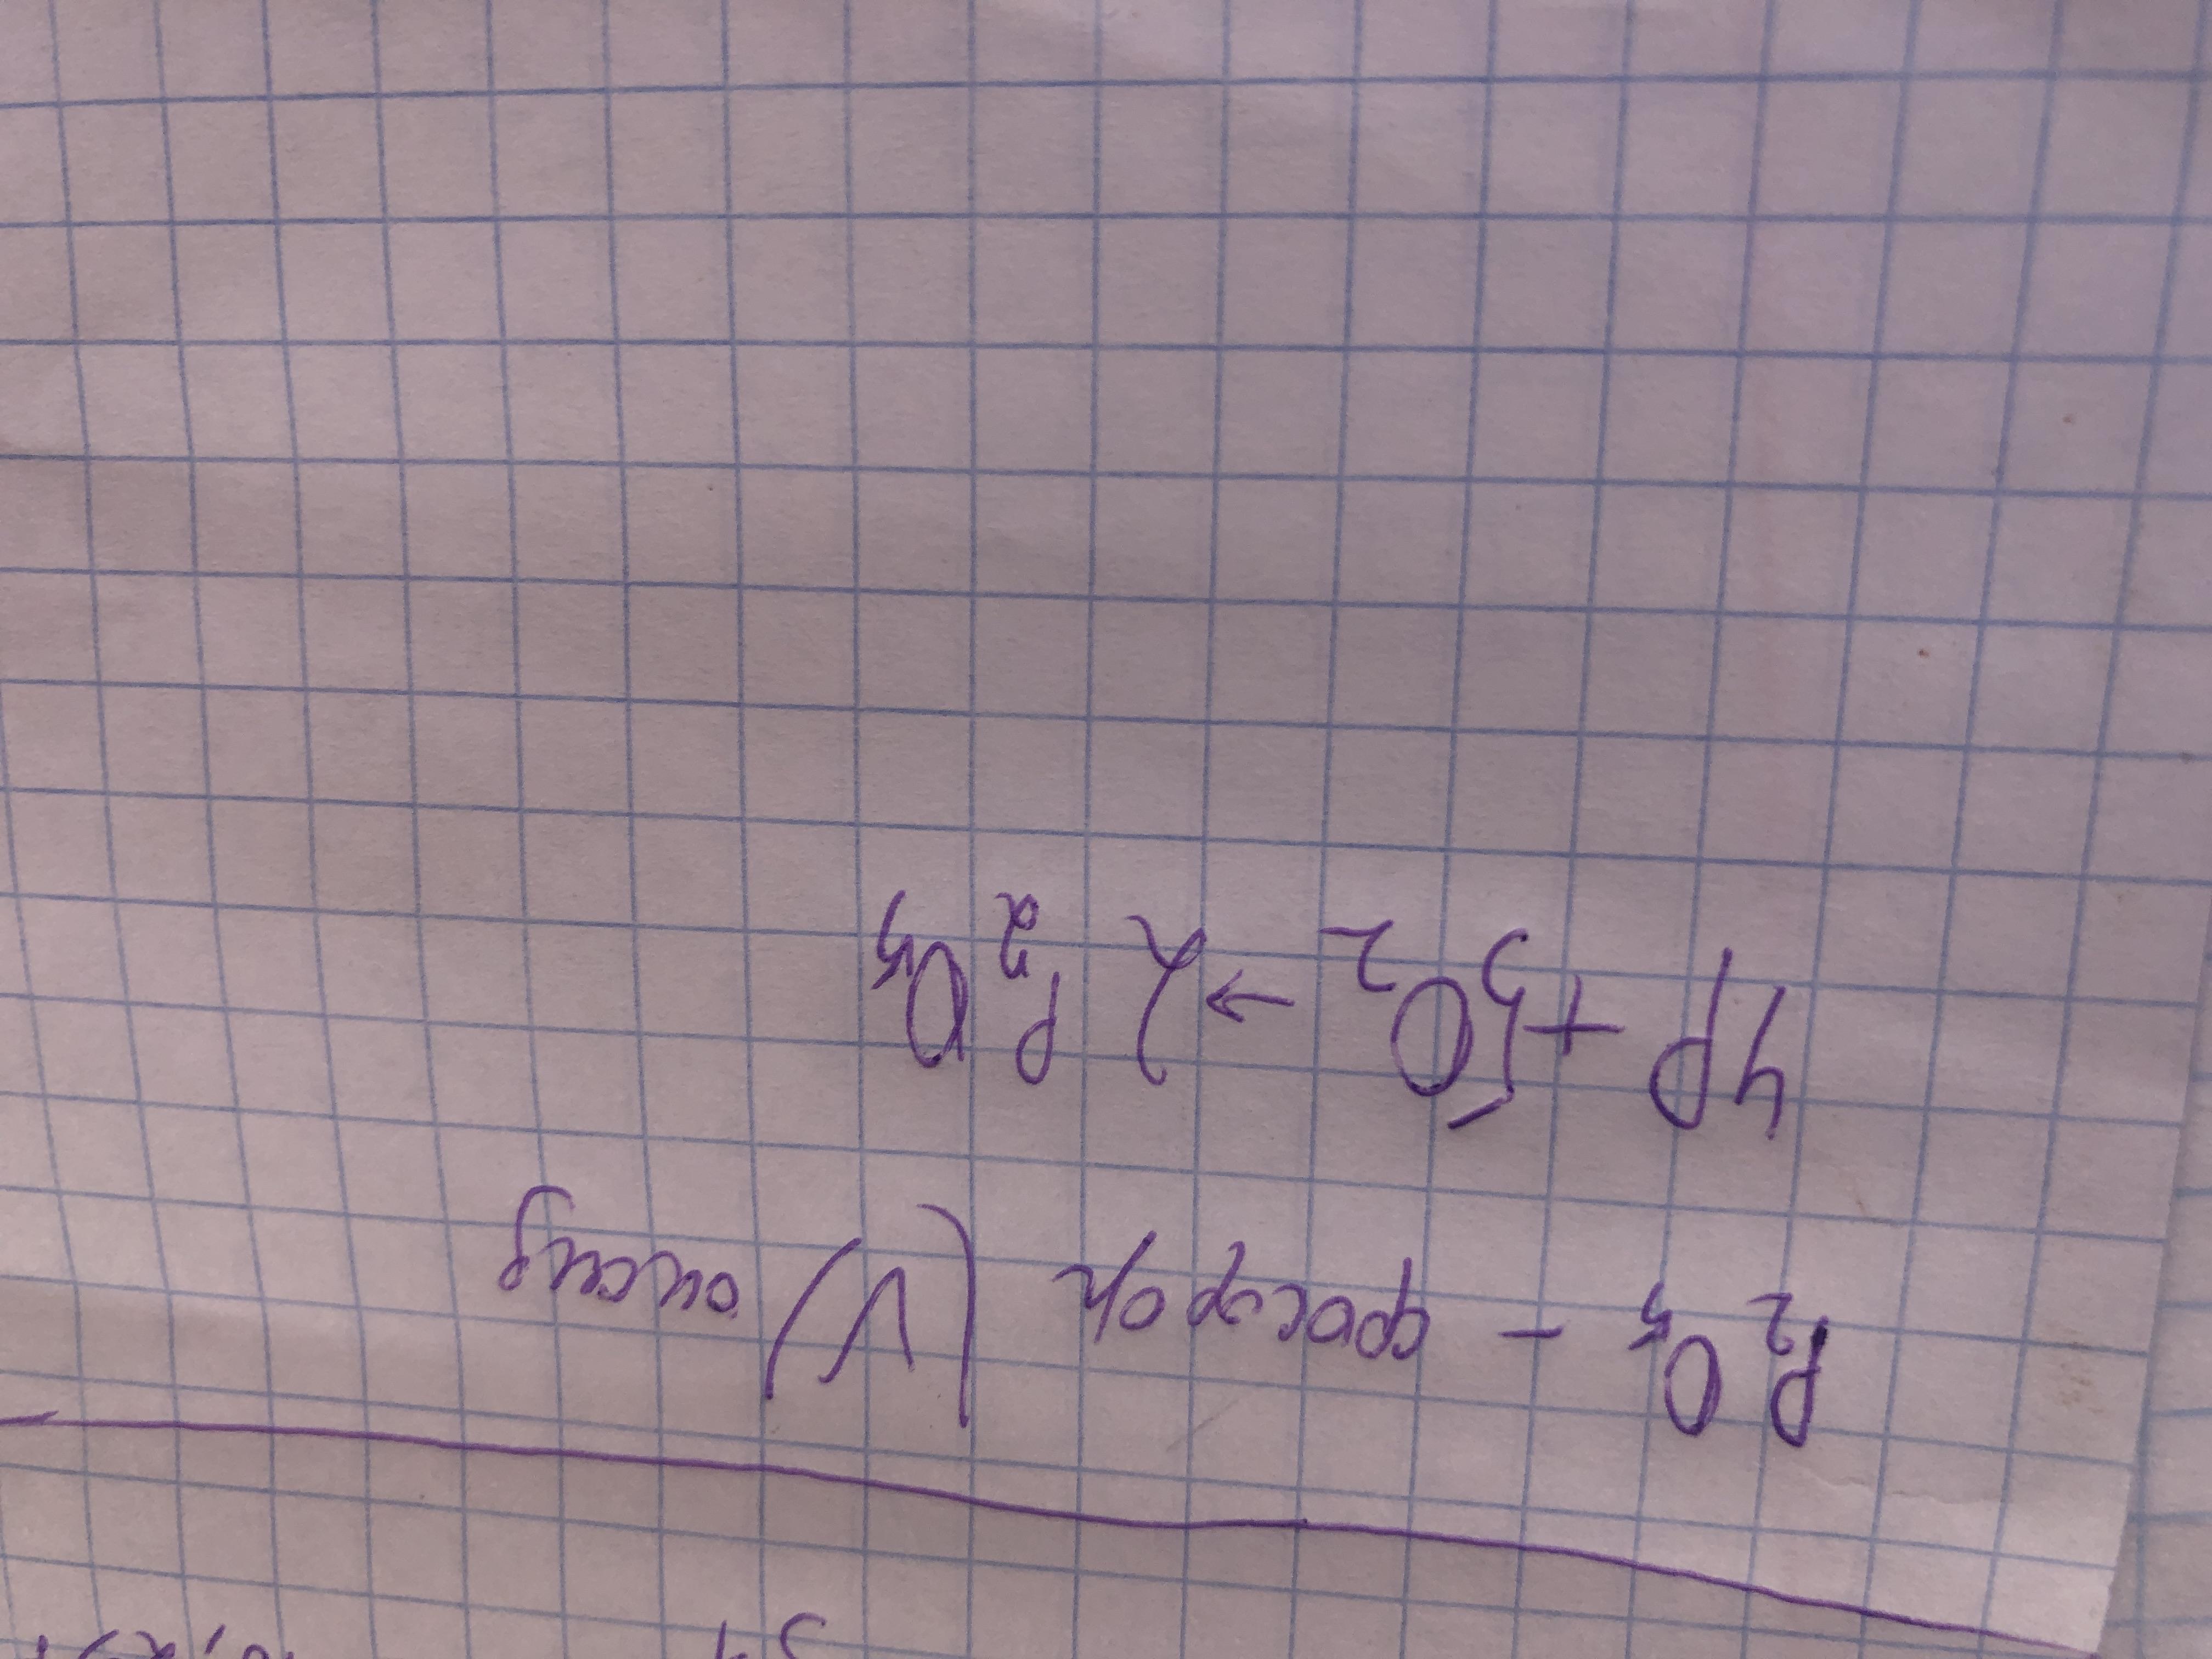 P₂O₅ - фосфор (V) оксид
4P + 5O₂ → 2P₂O₅